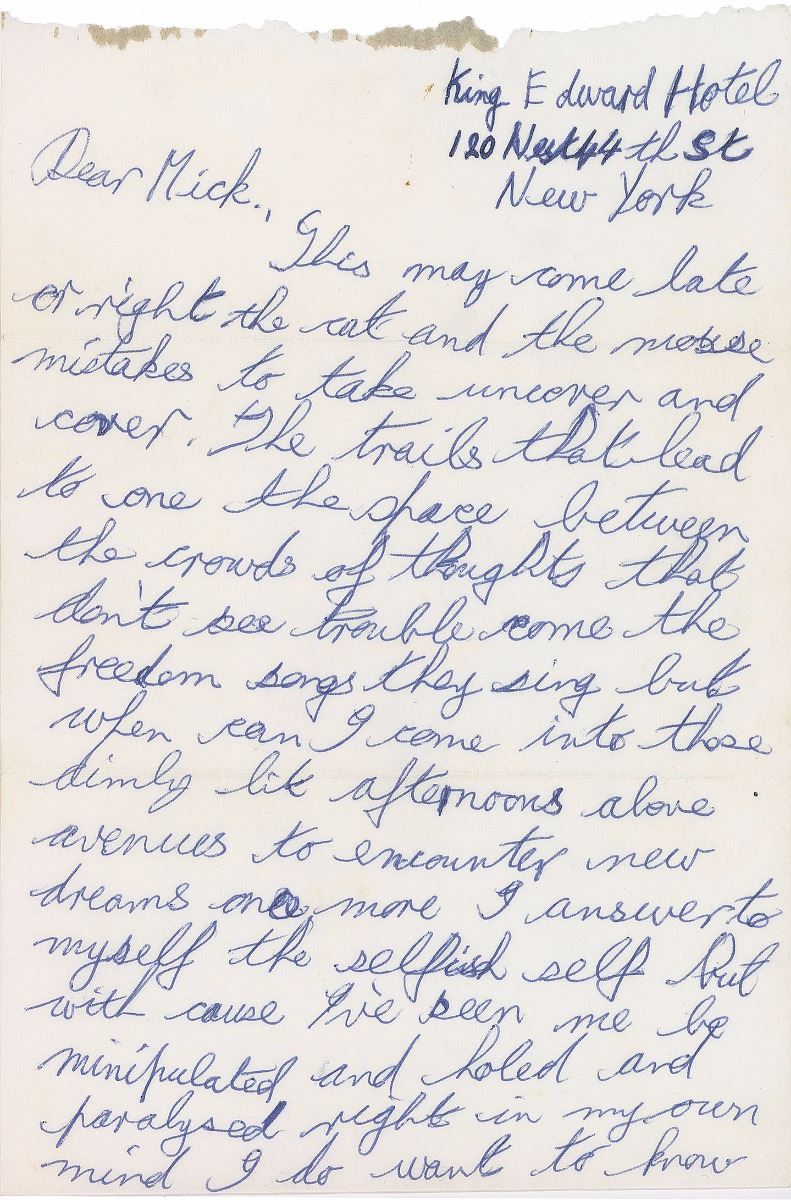 King Edward Hotel
120 West 44th St
New York
Dear Mick.,
This may come late
or right the cat and the mouse
mistakes to take uncover and
cover. The trails that lead
to one the space between
the crowds of thoughts that
don't see trouble come the
freedom songs they sing but
when can I come into those
dimly lit afternoons above
avenues to encounter new
dreams once more I answer to
myself the selfish self but
with cause I've been me be
minipulated and holed and
paralysed right in my own
mind I do want to know